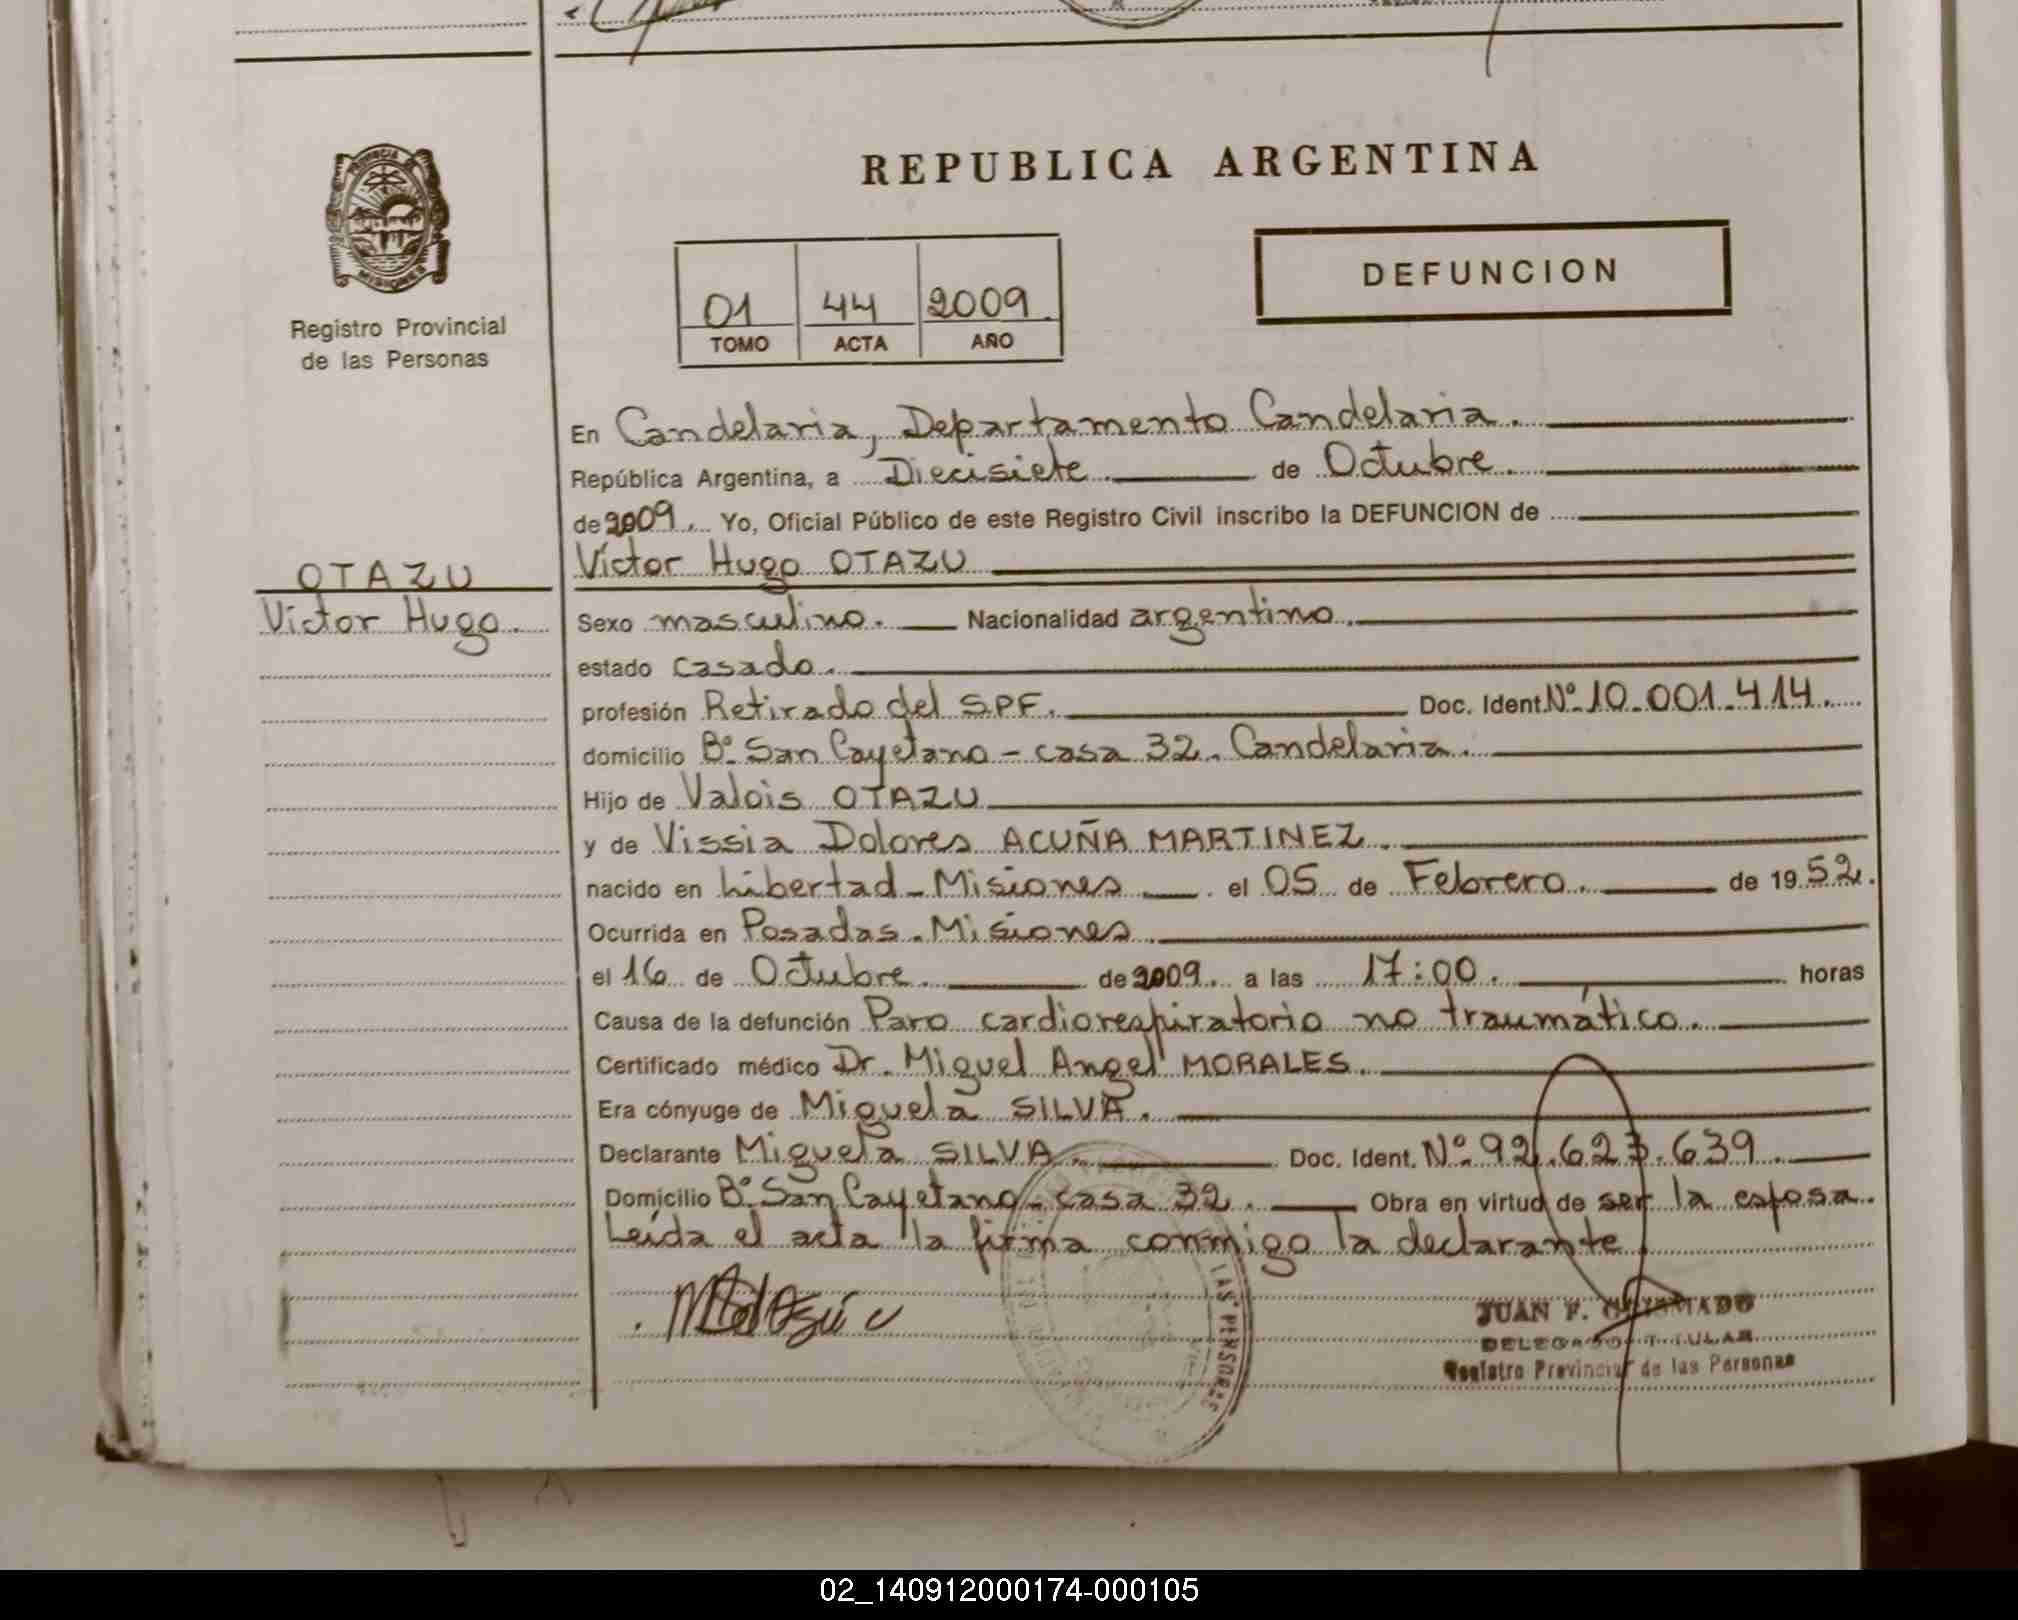 PROVINCIA DE
MISIONES
Registro Provincial
de las Personas
OTAZU
Victor Hugo.
REPUBLICA ARGENTINA
01 44 2009.
TOMO ACTA AÑO
DEFUNCION
En Candelaria, Departamento Candelaria.
República Argentina, a Diecisiete. de Octubre.
de 2009. Yo, Oficial Público de este Registro Civil inscribo la DEFUNCION de
Víctor Hugo OTAZU
Sexo masculino. Nacionalidad argentino.
estado casado.
profesión Retirado del S.P.F. Doc. Ident. Nº 10.001.414.
domicilio Bº San Cayetano - casa 32. Candelaria.
Hijo de Valois OTAZU
y de Vissia Dolores ACUÑA MARTINEZ.
nacido en Libertad - Misiones. el 05 de Febrero. de 1952.
Ocurrida en Posadas. Misiones.
el 16 de Octubre. de 2009. a las 17:00. horas
Causa de la defunción Paro cardiorespiratorio no traumático.
Certificado médico Dr. Miguel Angel MORALES.
Era cónyuge de Miguela SILVA.
Declarante Miguela SILVA. Doc. Ident. Nº 92.623.639
Domicilio Bº San Cayetano - casa 32. Obra en virtud de ser la esposa.
Leída el acta la firma conmigo la declarante
LAS PERSONAS
JUAN F.
DELEGADO TITULAR
Registro Provincial de las Personas
02_140912000174-000105